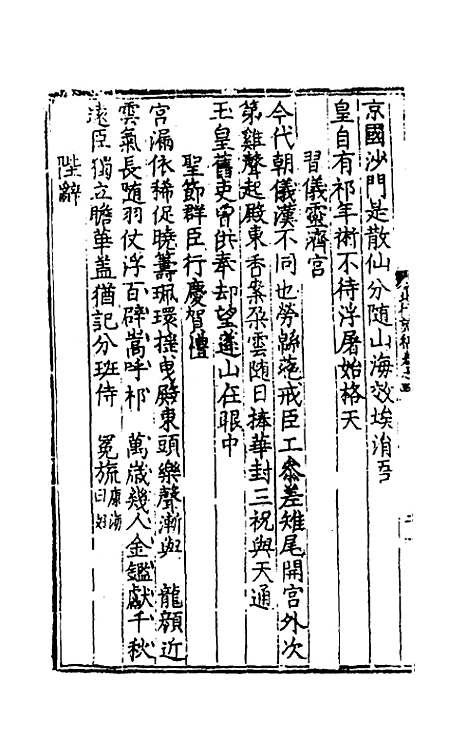 京國沙門是散仙分随山海效埃涓吾
皇自有祁年術不待浮屠始格天
習儀靈濟宫
今代朝儀漢不同也勞緜蕝戒臣工叅差雉尾開宫外次
第雞聲起殿東香案朶雲随日捧華封三祝與天通
玉皇舊吏曾供奉却望蓬山在眼中
聖節群臣行慶賀禮
宫漏依稀促曉籌珮環摇曳殿東頭樂聲漸與 龍顔近
雲氣長随羽仗浮百辟嵩呼祁 萬歲幾人金鑑獻千秋
逺臣獨立瞻華盖猶記分班侍 冕旒
陛辭